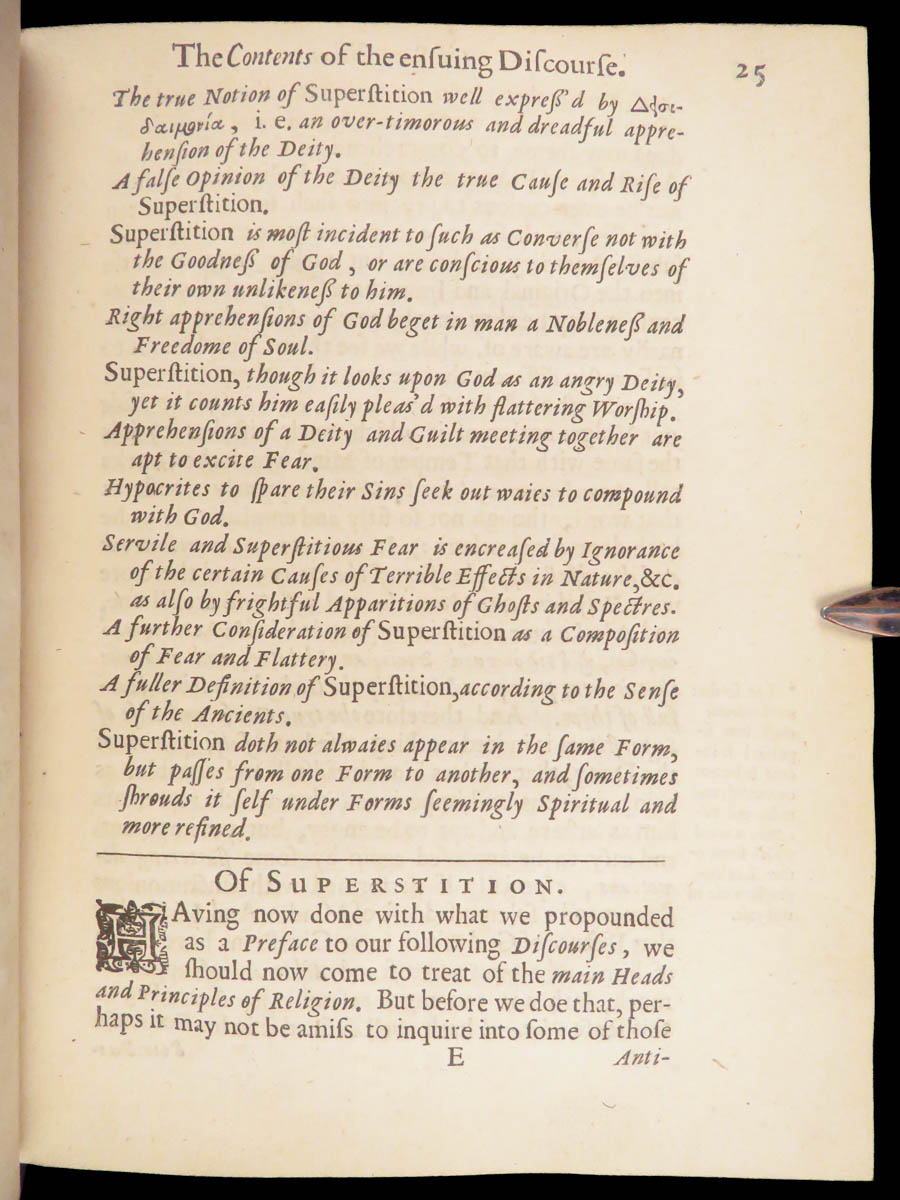 The Contents of the ensuing Discourse. 25
The true Notion of Superstition well expreſſ'd by Δεισι-
δαιμονία, i. e. an over-timorous and dreadful appre-
henſion of the Deity.
A falſe Opinion of the Deity the true Cauſe and Riſe of
Superſtition.
Superſtition is moſt incident to ſuch as Converſe not with
the Goodneſs of God, or are conſcious to themſelves of
their own unlikeneſs to him.
Right apprehenſions of God beget in man a Nobleneſs and
Freedome of Soul.
Superſtition, though it looks upon God as an angry Deity,
yet it counts him eaſily pleas'd with flattering Worſhip.
Apprehenſions of a Deity and Guilt meeting together are
apt to excite Fear.
Hypocrites to ſpare their Sins ſeek out waies to compound
with God.
Servile and Superſtitious Fear is encreaſed by Ignorance
of the certain Cauſes of Terrible Effects in Nature, &c.
as alſo by frightful Apparitions of Ghoſts and Spectres.
A further Conſideration of Superſtition as a Compoſition
of Fear and Flattery.
A fuller Definition of Superſtition, according to the Senſe
of the Ancients.
Superſtition doth not alwaies appear in the ſame Form,
but paſſes from one Form to another, and ſometimes
ſhrouds it ſelf under Forms ſeemingly Spiritual and
more refined.
Of SUPERSTITION.
HAving now done with what we propounded
as a Preface to our following Diſcourſes, we
ſhould now come to treat of the main Heads
and Principles of Religion. But before we doe that, per-
haps it may not be amiſs to inquire into ſome of thoſe
E Anti-